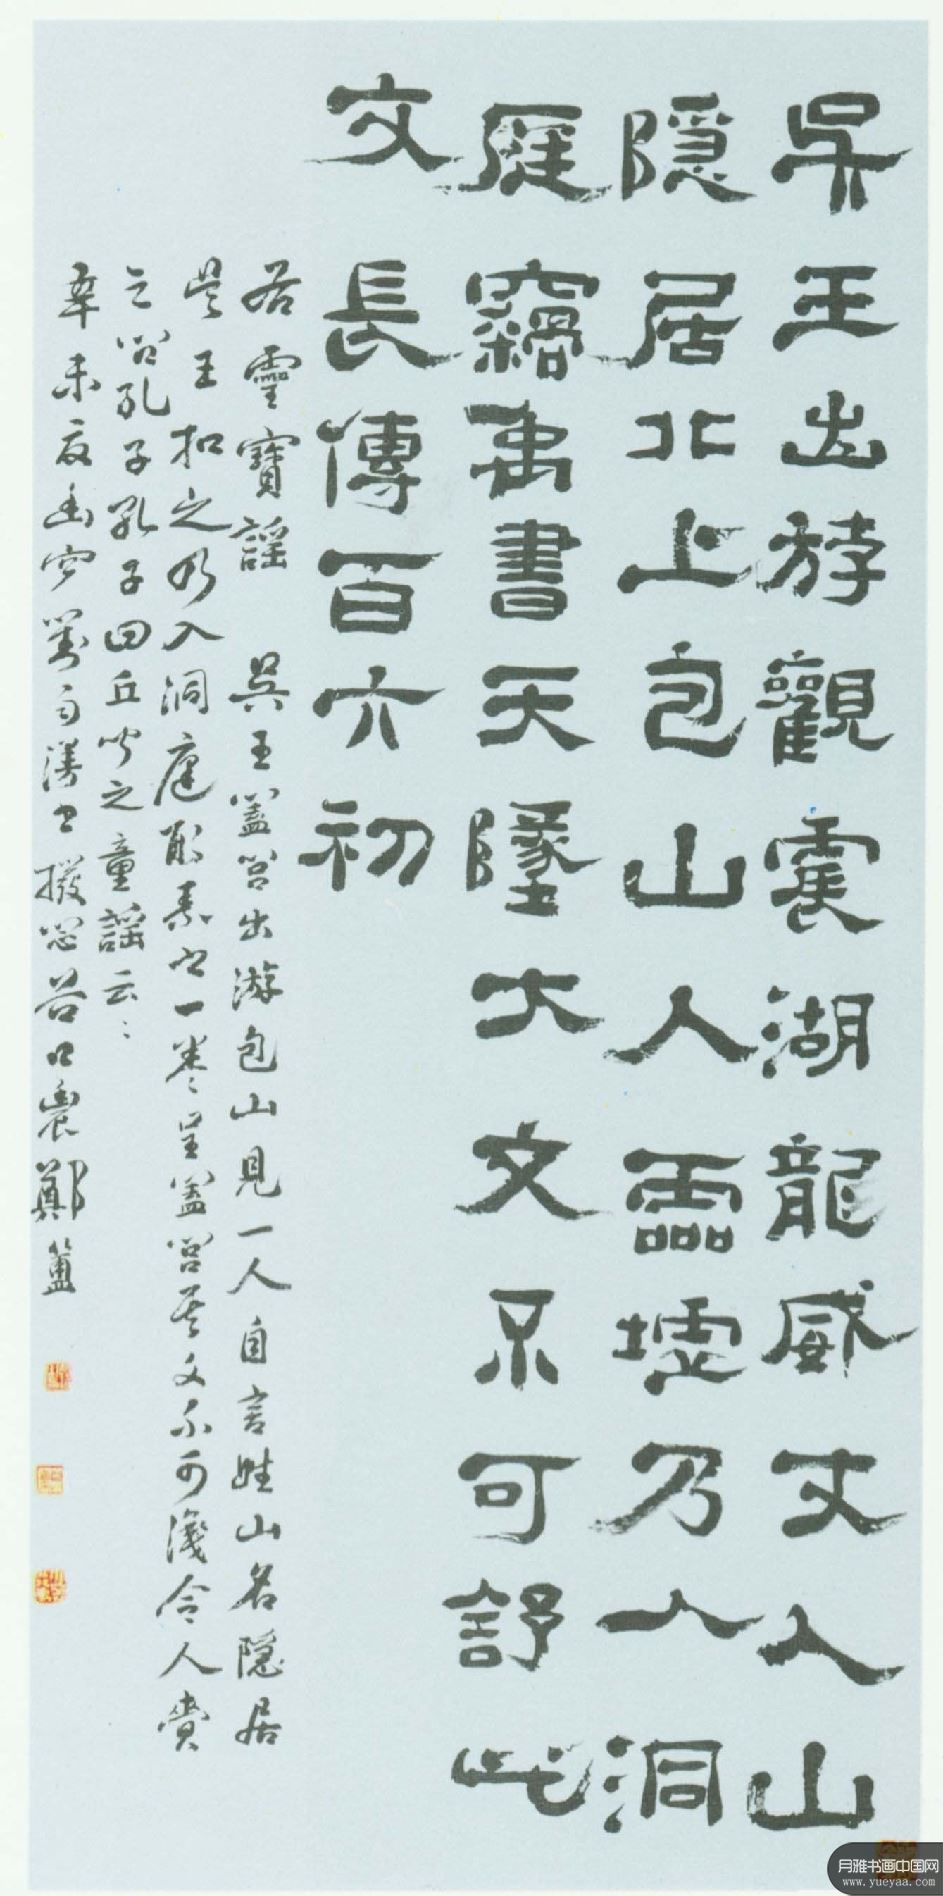 吳王出游觀震湖龍威丈人山
隱居北上包山人靈墟乃入洞
庭竊禹書天墜大文不可舒此
文長傳百六初
右靈寶謠 吳王蓋閭出游包山見一人自言姓山名隱居
吳王扣之乃入洞庭取素書一卷呈蓋閭其文不可識令人賫
之問孔子孔子曰丘聞之童謠云〻
辛未夏幽窗對雨漫書擬谷口農鄭簠
月雅书画中国网
www.yueyaa.com